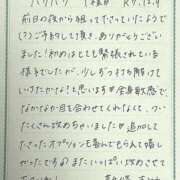 パリパリ 1様邸 R7.12.4
前日の夜から狙ってたというだよう
で(?)ご予約して頂き、ありがとうござい
ました!初めはとても緊張されている
様子でしたが、少しずつ打ち解けて
いけたかな?と思います♡全身敏感で
なかなか目を合わせてくれなくて、つい
たくさん攻めちゃいましたが追加して
たったオプションも喜んでもらえて嬉し
かったです♡またいっぱい攻めさせて